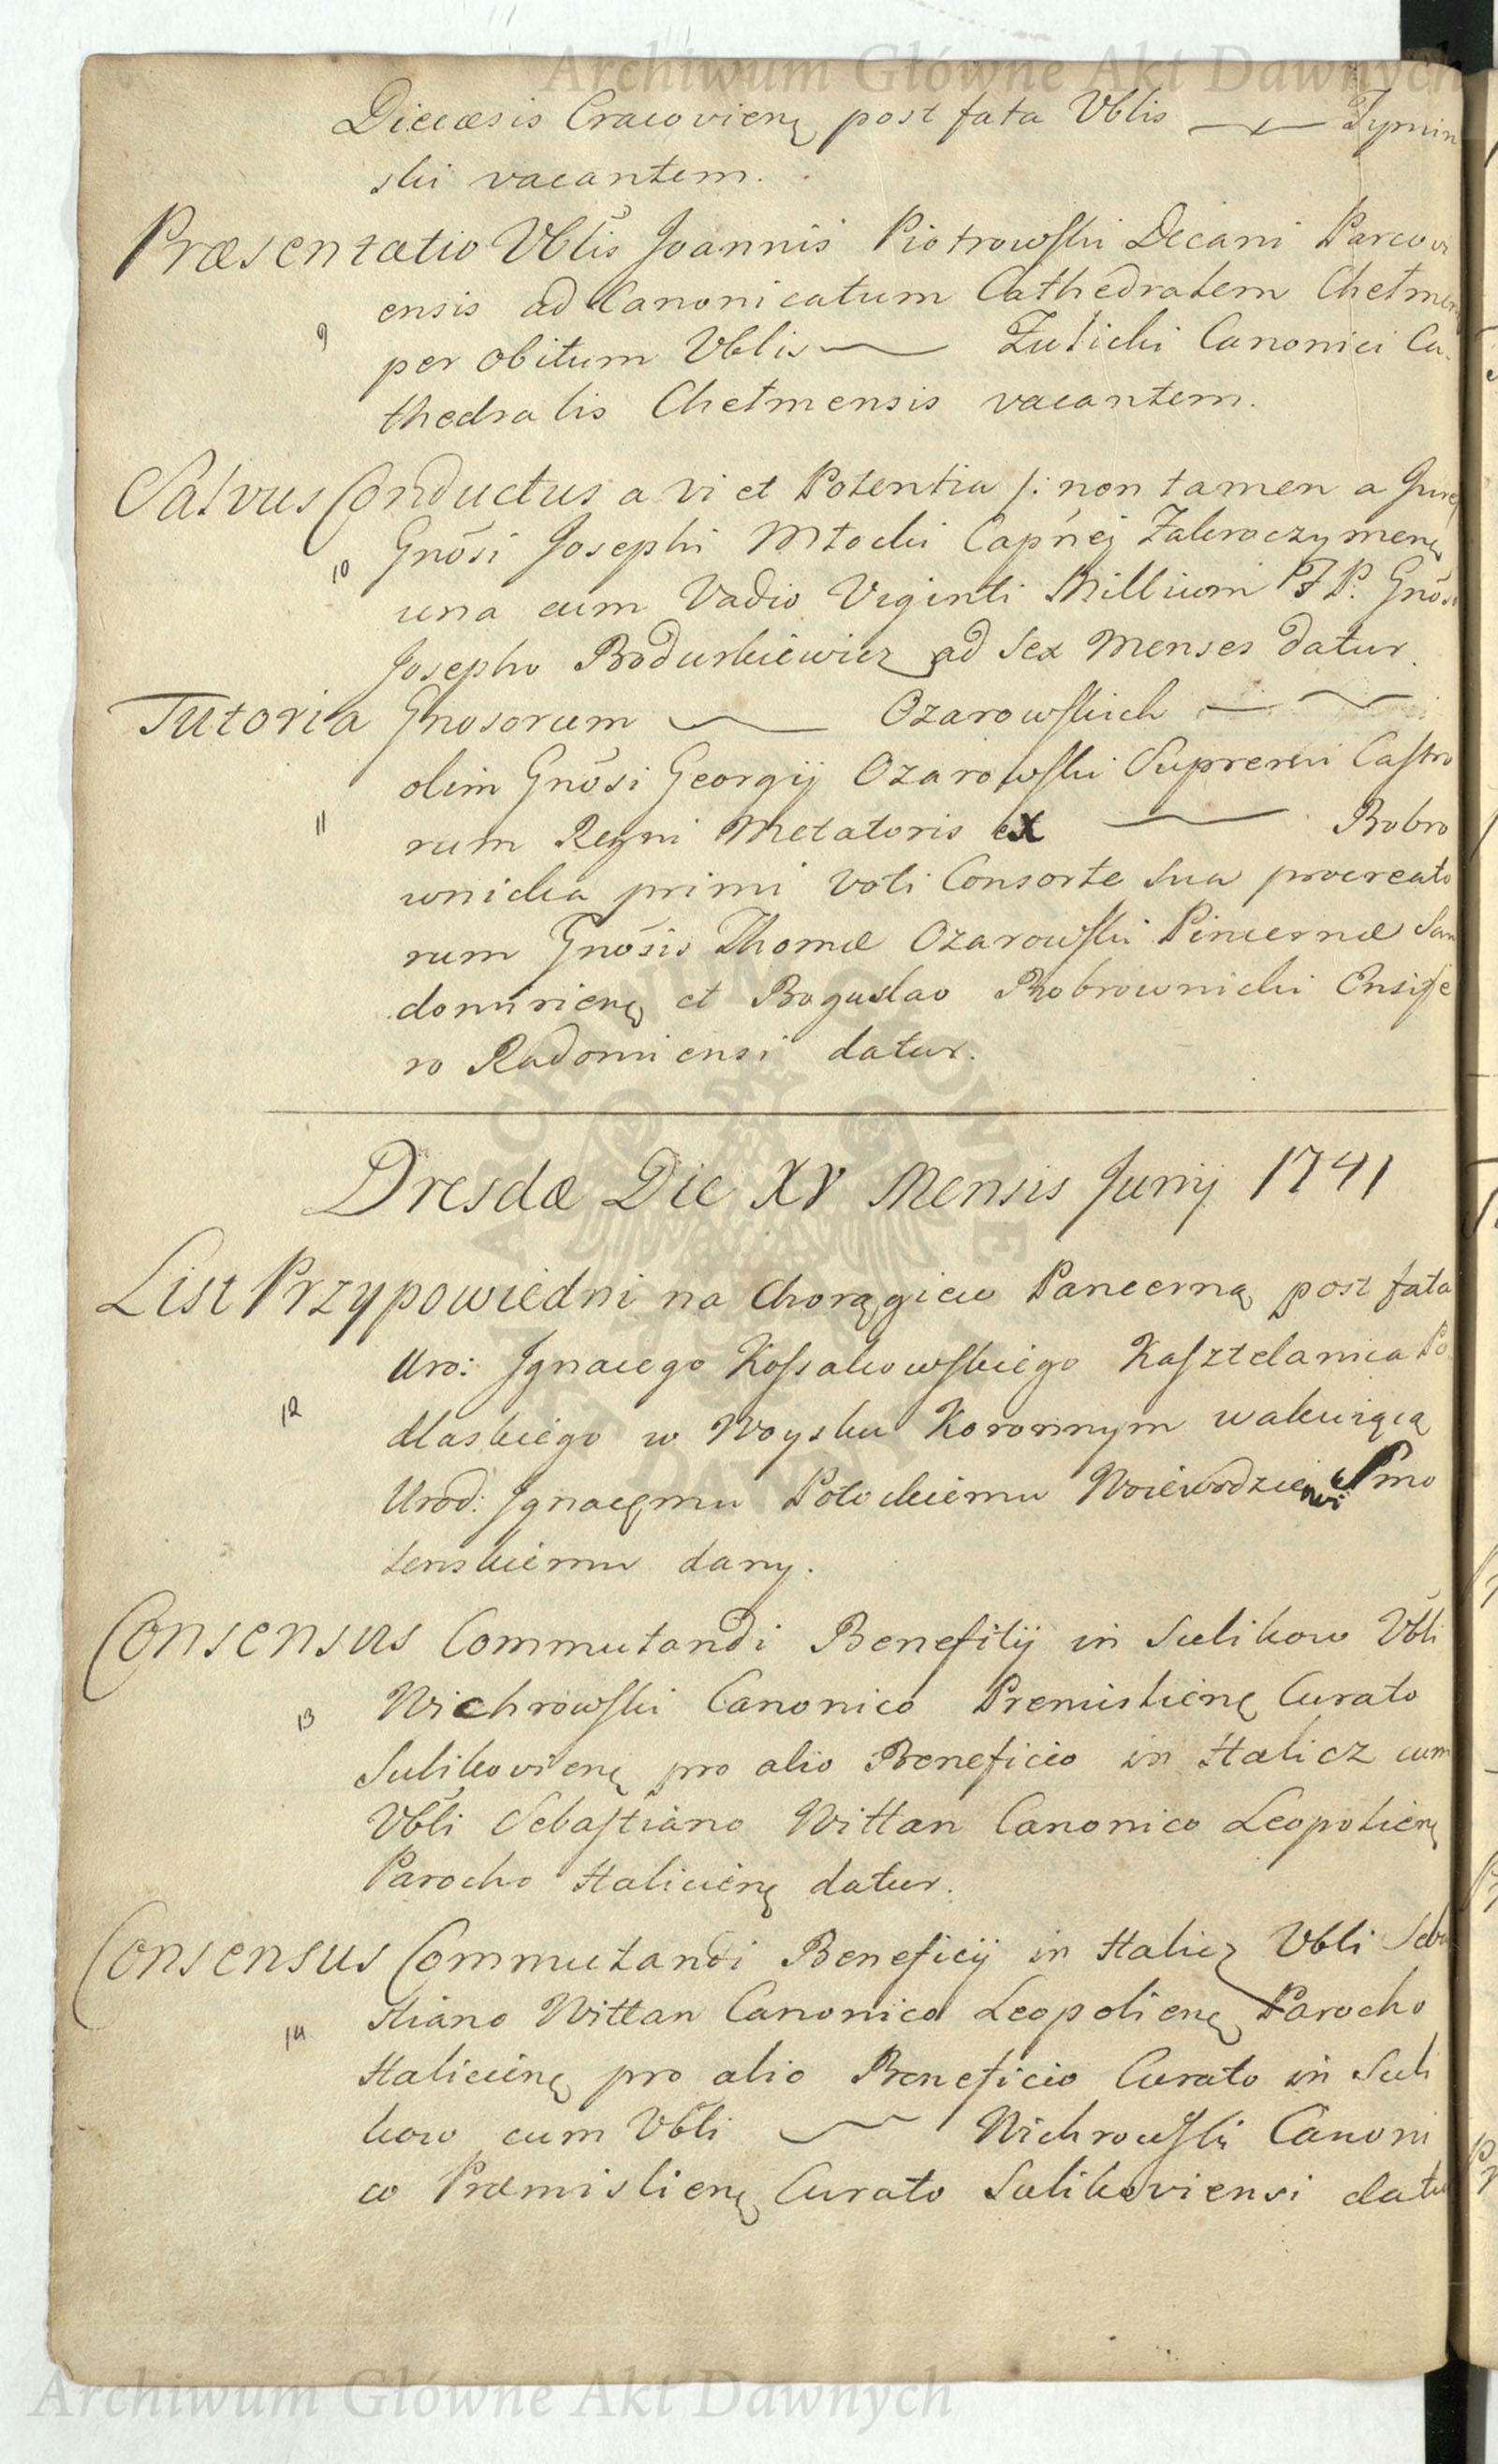 Archiwum Główne Akt Dawnych
Diecæsis Cracovienę post fata Vblis — Tymin
ski vacantem.
Præsentatio Vblis Joannis Piotrowski Decani Parcovi
ensis ad Canonicatum Cathedralem Chełmen
9
per obitum Vblis — Żulicki Canonici Ca-
thedralis Chełmensis vacantem.
Salvus Conductus a vi et Potentia /: non tamen a Jure
Gnősi Josephi Młocki Capńej Zakroczymenę
10
una cum Vadio Viginti Millium F P. Gnős
Josepho Bodurkiewicz ad sex Menses datur.
Tutoria Gnosorum — Ozarowskich —
olim Gnősi Georgij Ozarowski Supremi Castro
11
rum Regni Metatoris ex — Bobro
wnicka primi voti Consorte sua procreato
rum Gnősis Thomæ Ozarowski Pincernæ San
domirienę et Boguslao Bobrownicki Ensife
ro Radomiensi datur.
Dresdæ Die XV Mensis Junij 1741
List Przypowiedni na Chorągiew Pancerną post fata
Uro: Jgnacego Kossakowskiego Kasztelanica Po
12
dlaskiego w Woysku Koronnym wakuiącą
Urod: Jgnacęmu Potockiemu Woiewodzicowi Smo
lenskiemu dany.
Consensus Commutandi Benefitij in Sulikow Vbli
Wichrowski Canonico Premislienę Curato
13
Sulikovienę pro alio Beneficio in Halicz cum
Vbli Sebastiano Wittan Canonico Leopolienę
Parocho Halicienę datur.
Consensus Commutandi Beneficij in Halicz Vbli Seba
stiano Wittan Canonico Leopolienę Parocho
14
Halicienę pro alio Beneficio Curato in Suli
kow cum Vbli — Wichrowski Canoni
co Præmislienę Curato Sulikoviensi datu
Archiwum Główne Akt Dawnych